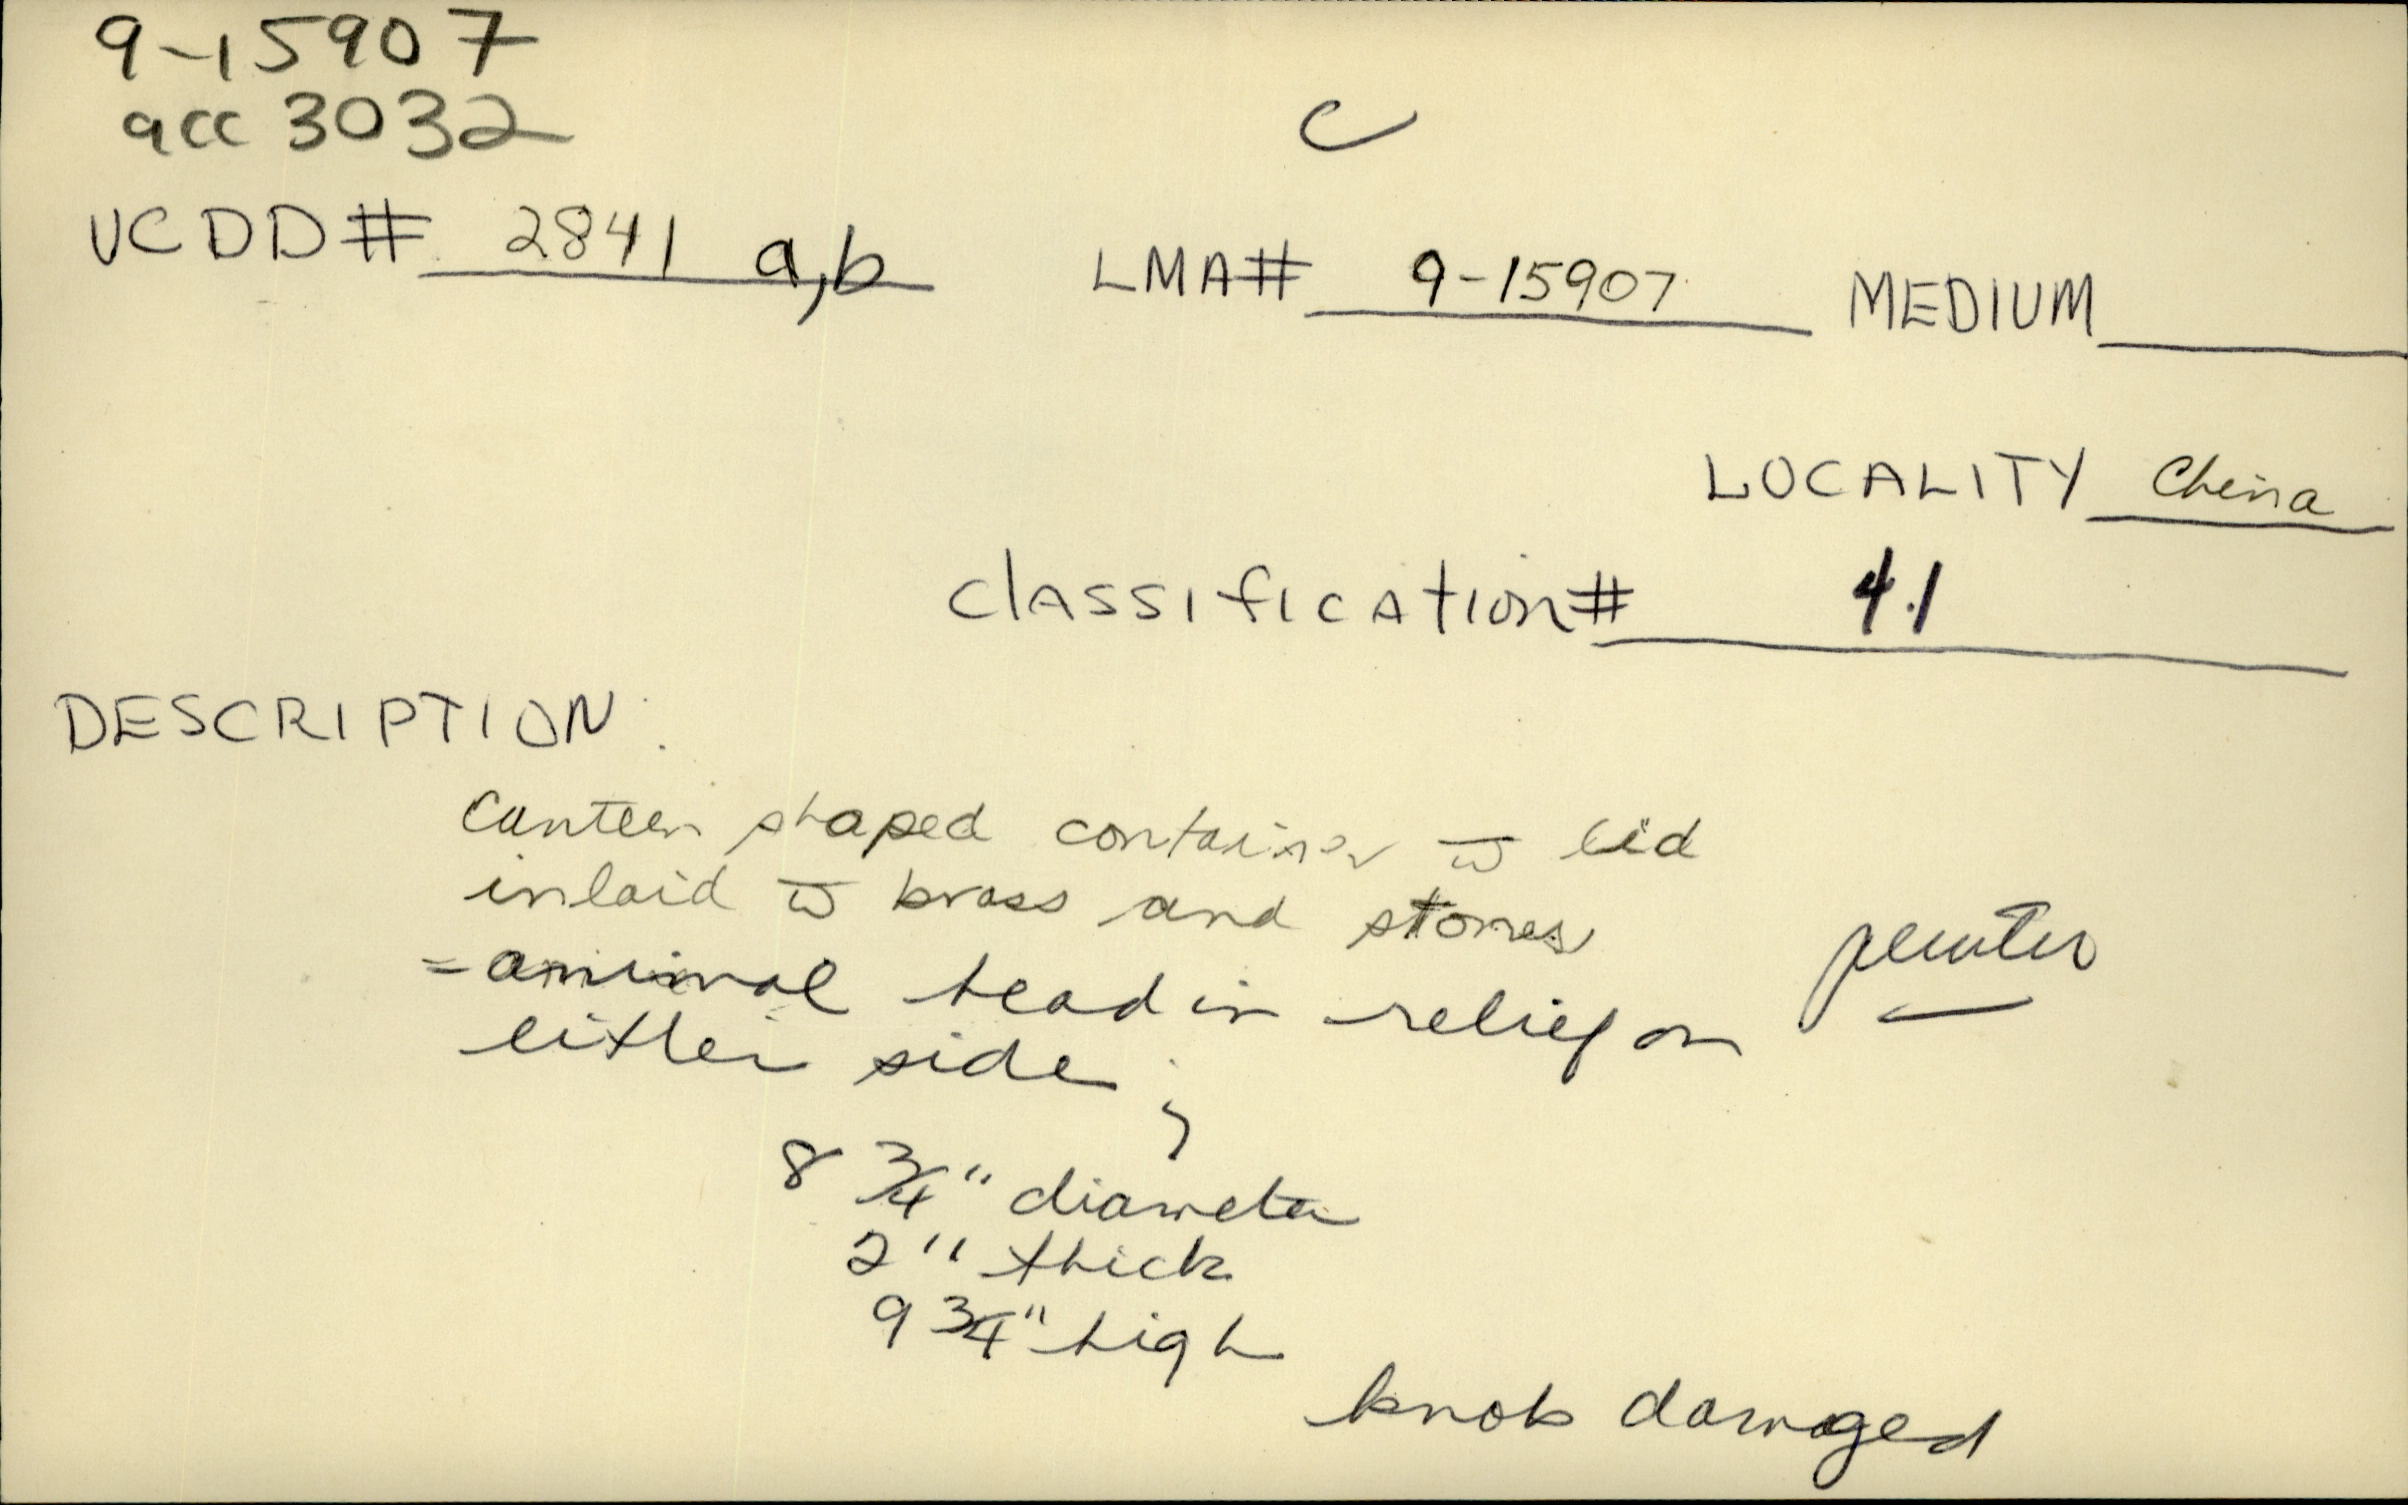 9-15907
acc 3032
C
UCDD# 2841 a,b LMA# 9-15907 MEDIUM
LOCALITY China
Classification# 4.1
DESCRIPTION:
Canteen shaped container w̄ lid
inlaid w̄ brass and stones
= animal head in relief on pewter
either side;
8 3/4" diameter
2" thick
9 3/4" high
knob damaged